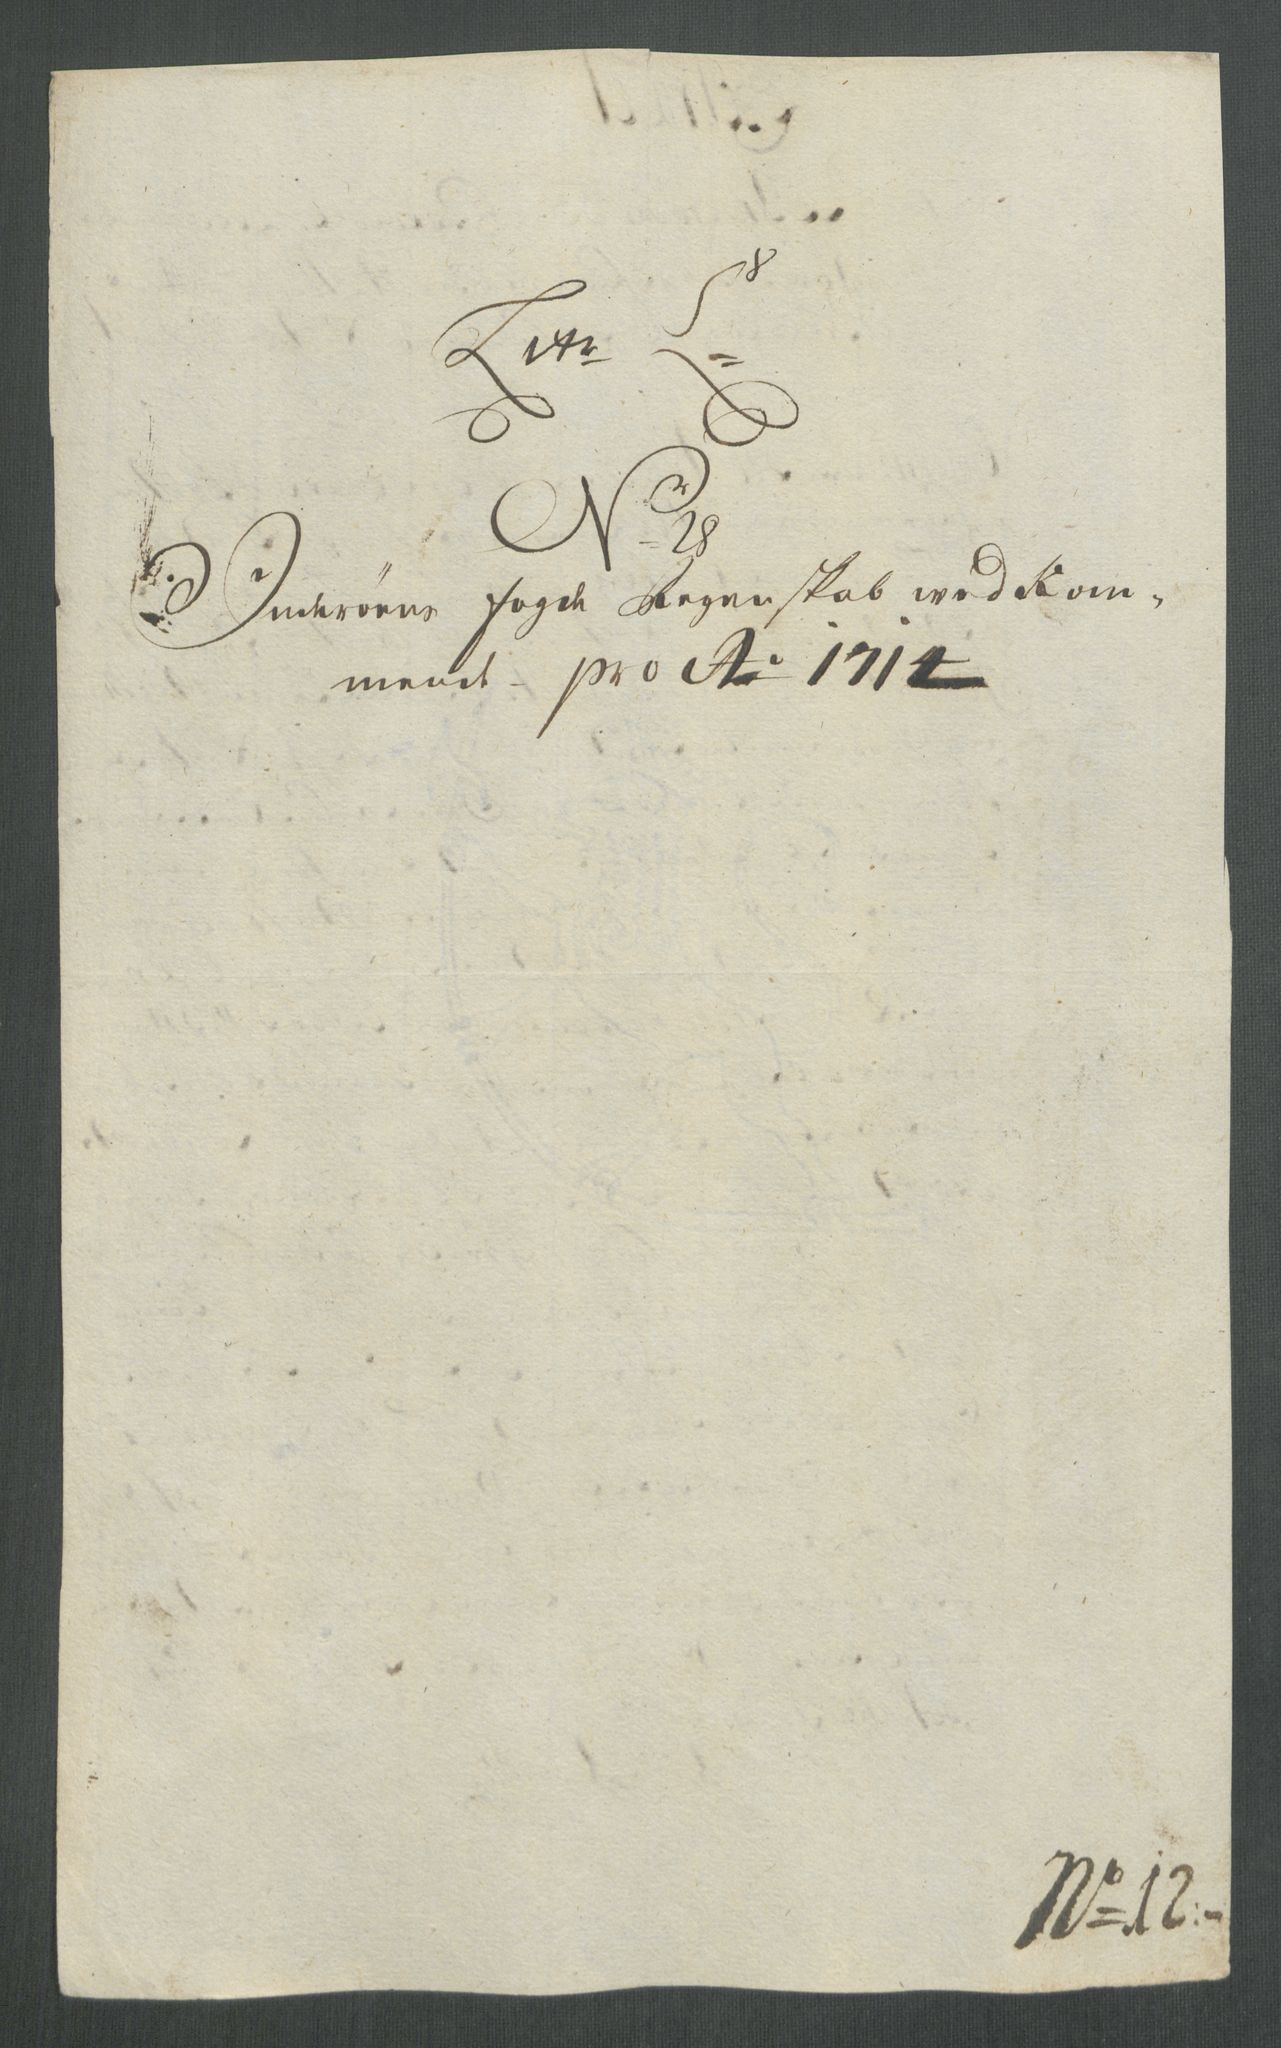 Litr L
Nr 28
Inderöens fogde Regenskab wedkom-
mende pro Ao 1714
No 12.